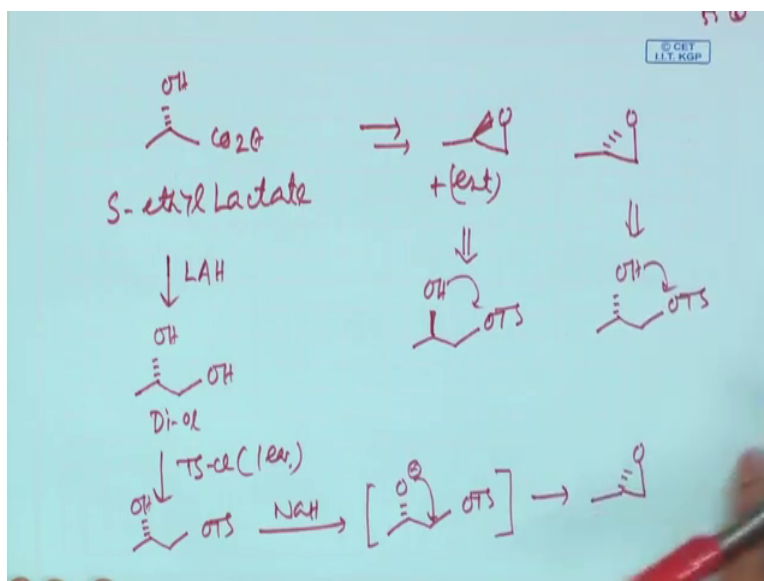 © CET
I.I.T. KGP
OH
CO2Et
S-ethyl Lactate
O
+(ent)
O
LAH
OH
OH
Di-ol
OH
OTS
OH
OTS
TS-Cl (1 eq.)
OH
OTS
NaH
[ O ⊖ OTS ]
O